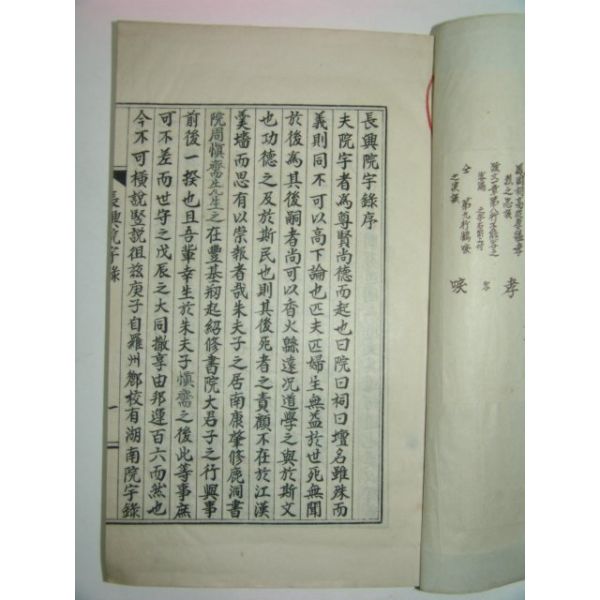 長興院宇錄序
夫院宇者爲尊賢尚德而起也曰院曰祠曰壇名雖殊而
義則同不可以高下論也匹夫匹婦生無益於世死無聞
於後爲其後嗣者尚可以香火縣遠况道學之與於斯文
也功德之及於斯民也則其後死者之責顧不在於江漢
羹墻而思有以崇報者哉朱夫子之居南康肇修鹿洞書
院周愼齋先生之在豐基刱起紹修書院大君子之行興事
前後一揆也且吾輩幸生於朱夫子愼齋之後此等事庶
可不差而世守之戊辰之大同撤享由邦運百六而然也
今不可橫說竪說徂玆庚子自羅州鄕校有湖南院宇錄
長興院宇錄
一
孝
咳